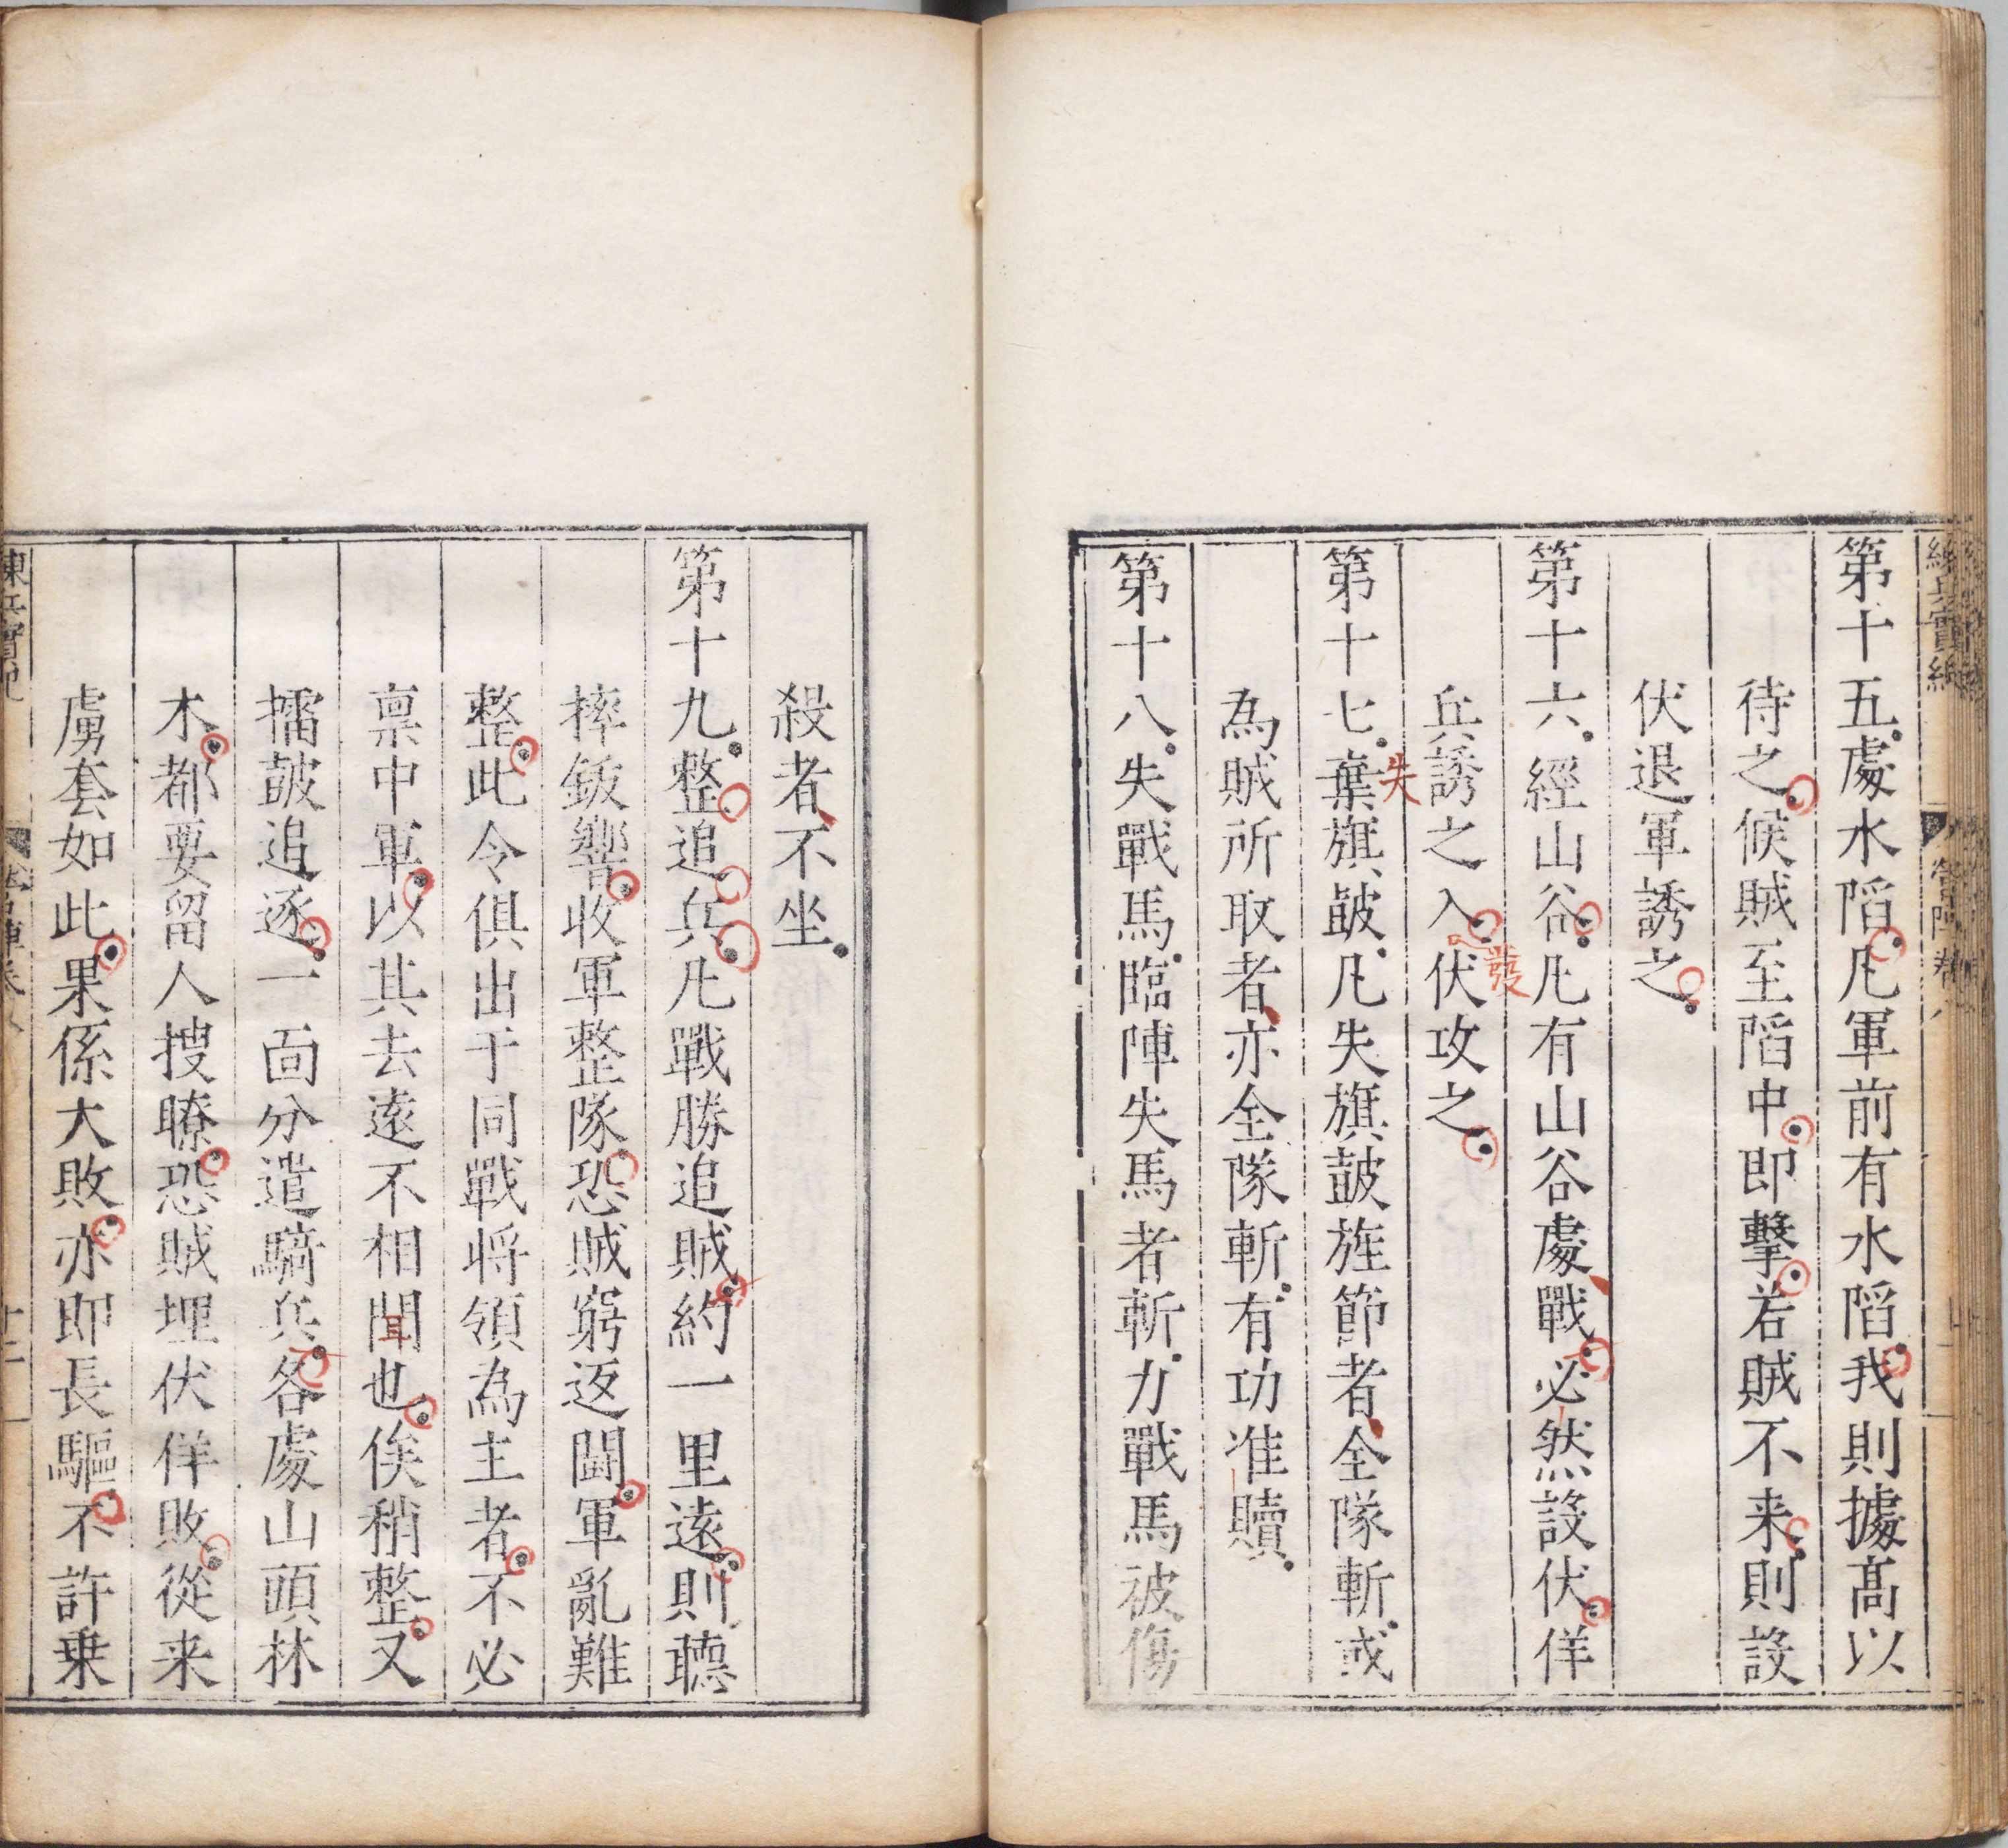 練兵實紀
營陣卷八
第十五處水䧟凡軍前有水䧟我則據髙以
待之候賊至䧟中即擊若賊不来則設
伏退軍誘之
第十六經山谷凡有山谷處戰必然設伏佯
兵誘之入伏攻之
發
第十七棄旗鼓凡失旗鼓旌節者全隊斬或
失
為賊所取者亦全隊斬有功准贖
第十八失戰馬臨陣失馬者斬力戰馬被傷
殺者不坐
第十九整追兵凡戰勝追賊約一里遠則聽
摔鈸響收軍整隊恐賊窮返鬪軍亂難
整此令俱出于同戰將領為主者不必
禀中軍以其去遠不相聞也俟稍整又
擂鼓追逐一面分遣騎兵各處山頭林
木都要留人搜瞭恐賊埋伏佯敗從来
虜套如此果係大敗亦即長驅不許乗